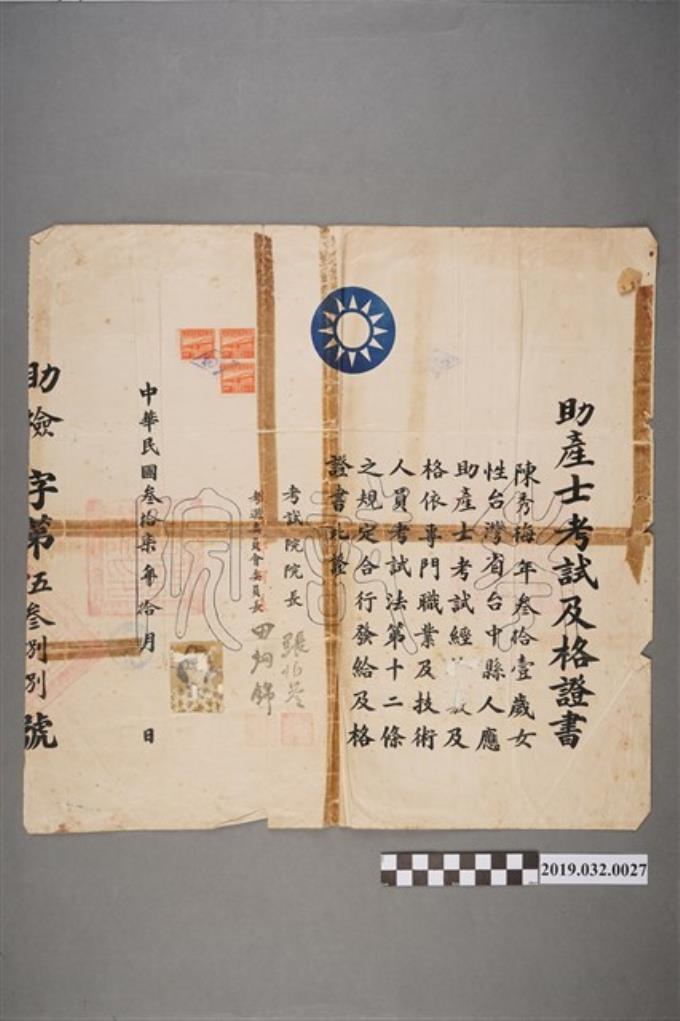 助產士考試及格證書
陳秀梅年叁拾壹歲女
性台灣省台中縣人應
助產士考試經 及
格依專門職業及技術
人員考試法第十二條
之規定合行發給及格
證書此證
考試院院長 張伯苓
考選委員會委員長 田炯錦
中華民國叁拾柒年拾月 日
助險字第伍叁別別號
考試院
2019.032.0027